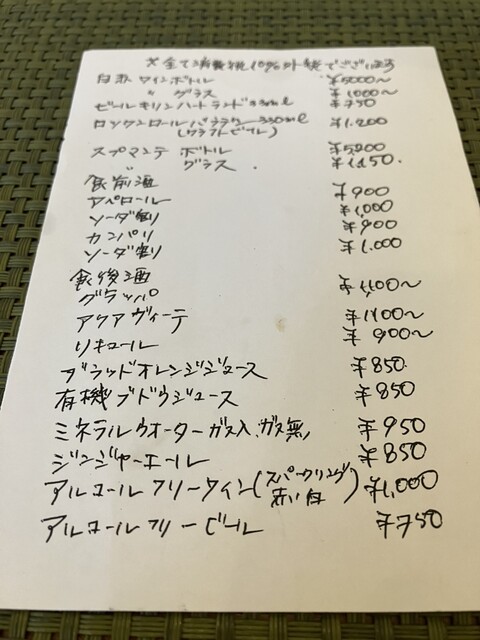 ※全て消費税10%外税でございます
白赤 ワインボトル ¥5000〜
〃 グラス ¥1000〜
ビールキリンハートランド330ml ¥750
ロックンロール 330ml ¥1.200
(クラフトビール)
スプマンテ ボトル ¥5,200
〃 グラス ¥1,150.
食前酒
アペロール ¥900
ソーダ割り ¥1,000
カンパリ ¥900
ソーダ割り ¥1.000
食後酒
グラッパ ¥1,100〜
アクアヴィーテ ¥1100〜
リキュール ¥900〜
ブラッドオレンジジュース ¥850
有機ブドウジュース ¥850
ミネラルウォーターガス入.ガス無 ¥950
ジンジャーエール ¥850
アルコールフリーワイン(スパークリング 赤い白) ¥1,000
アルコールフリービール ¥750